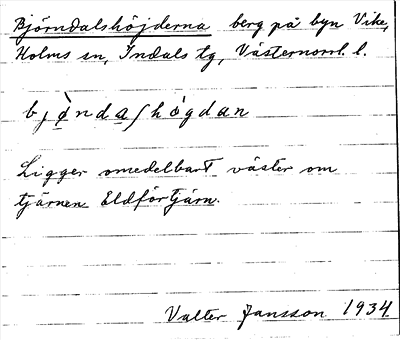 Björndalshöjderna berg på byn Vike,
Holms sn, Indals tg, Västernorrl. l.
bjø̀ndaʃhògdan
Ligger omedelbart väster om
tjärnen Eldförtjärn.
Valter Jansson 1934.